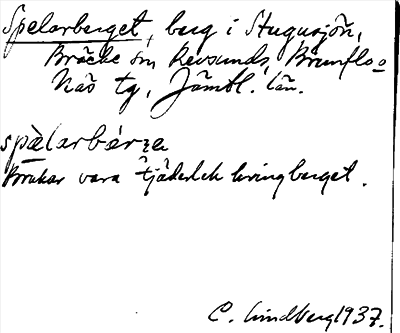 Spelarberget, berg i Stugusjön,
Bräcke sn Revsunds, Brunflo o
Näs tg, Jämtl. län.
spe̱larbárʒa
Brukar vara tjäderlek kring berget.
C. Lindberg 1937.